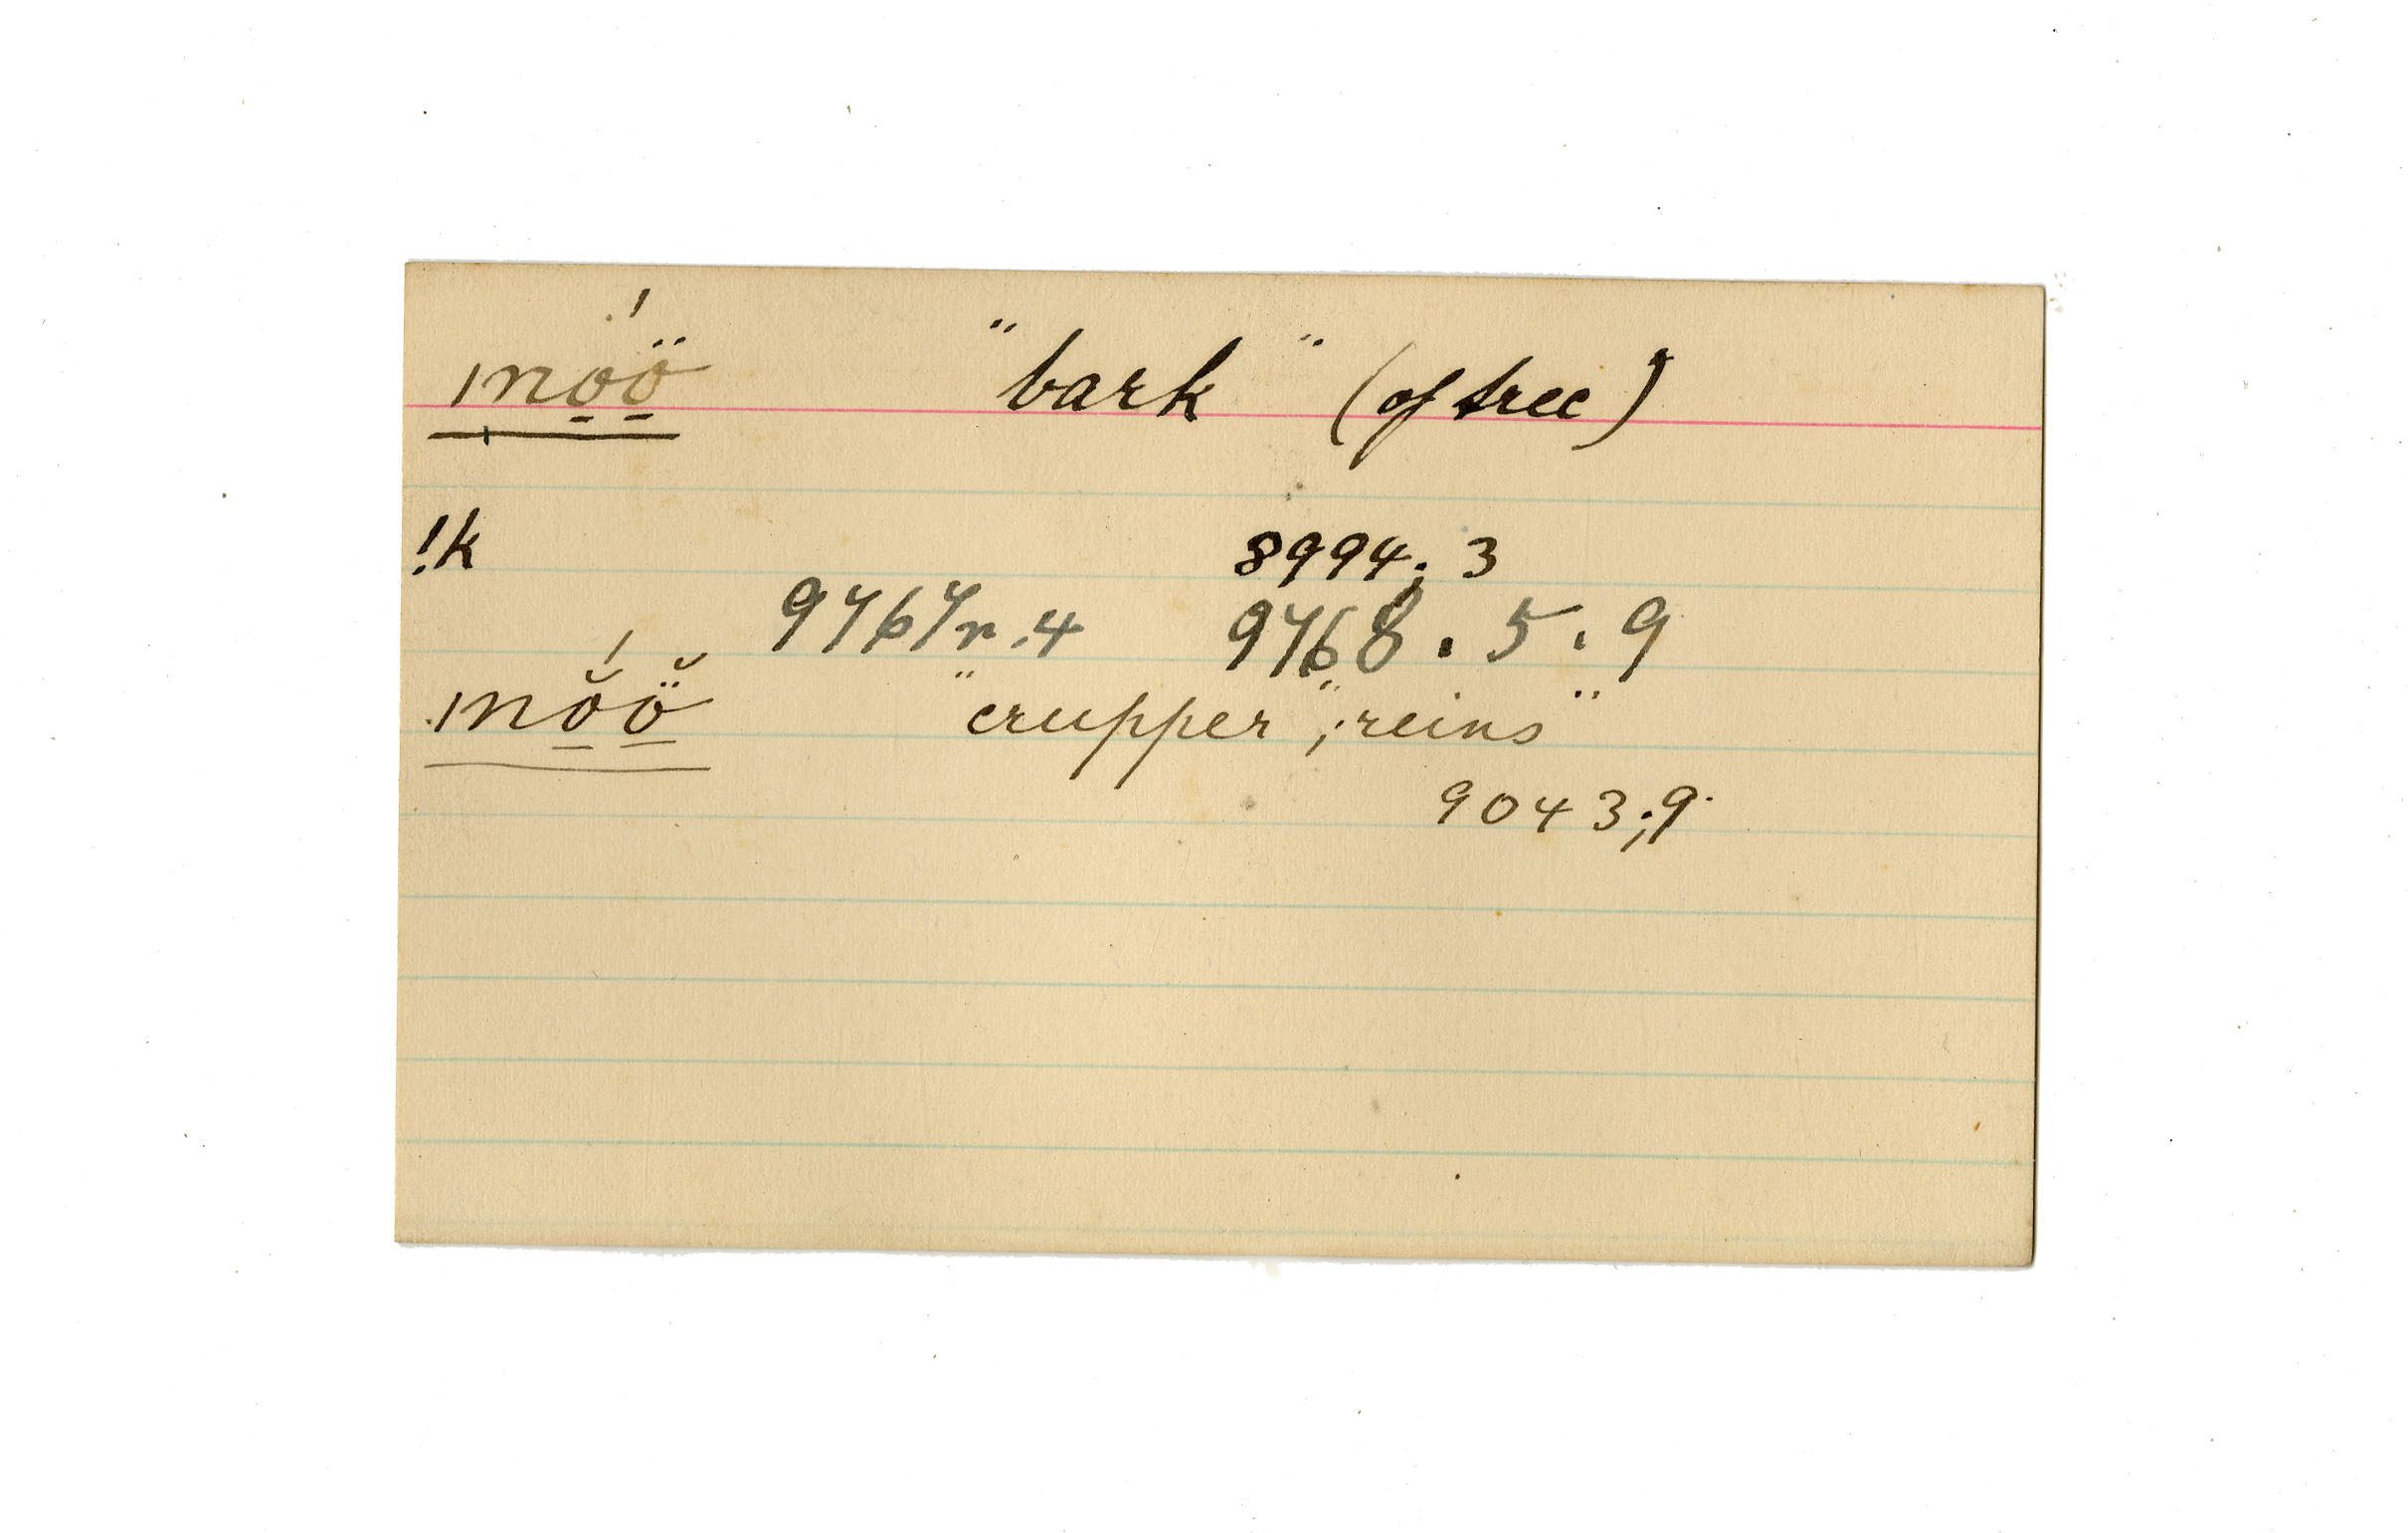 ı́nọọ̈ "bark" (of tree)
!k 8994; 3
9767r.4 9768.5.9
ı́nọ̆ọ̈̆ "crupper"; reins"
9043;9.